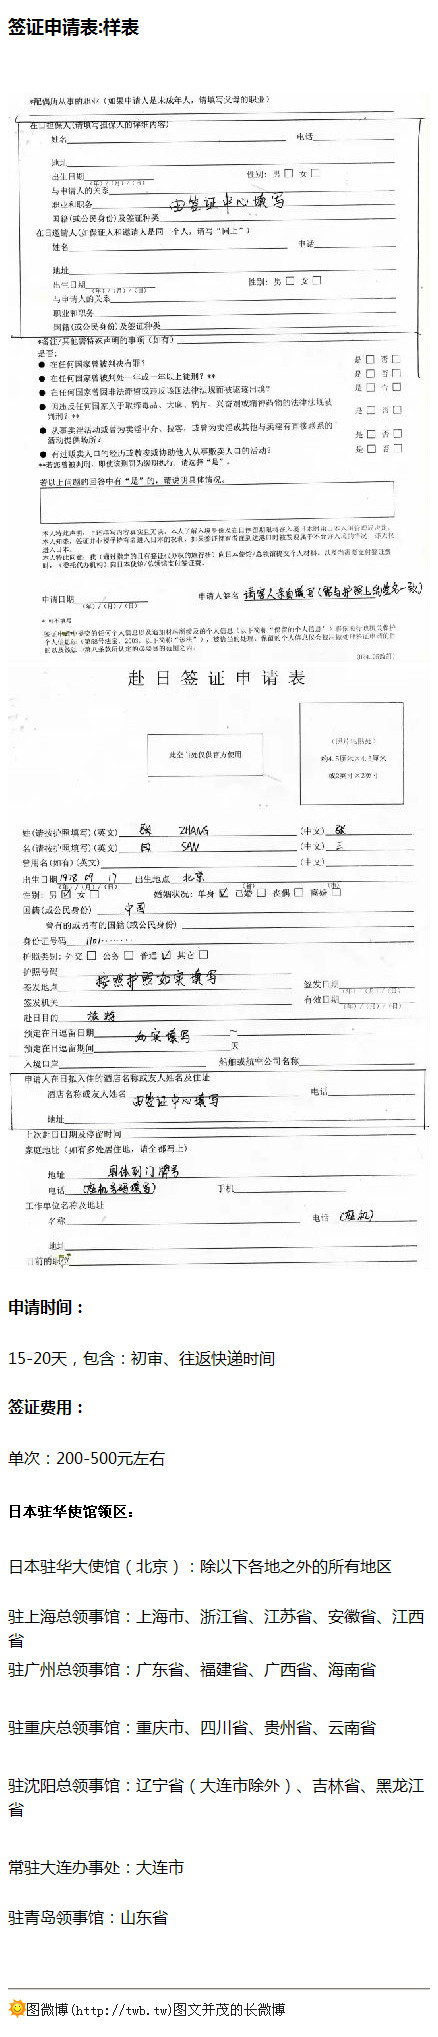 签证申请表:样表
*配偶所从事的职业（如果申请人是未成年人，请填写父母的职业）
在日担保人(请填写担保人的详细内容)
姓名 电话
地址
出生日期 性别：男 女
(年)/(月)/(日)
与申请人的关系
职业和职务 由签证中心填写
国籍(或公民身份)及签证种类
在日邀请人(如保证人和邀请人是同一个人，请写“同上”)
姓名 电话
地址
出生日期 性别：男 女
(年)/(月)/(日)
与申请人的关系
职业和职务
国籍(或公民身份)及签证种类
*备注/其他需特殊声明的事项(如有)
是否:
● 在任何国家曾被判决有罪? 是 否
● 在任何国家曾被判处一年或一年以上徒刑?** 是 否
● 在任何国家曾因非法滞留或违反该国法律法规而被驱逐出境? 是 否
● 因违反任何国家关于取缔毒品、大麻、鸦片、兴奋剂或精神药物的法律法规被
判刑?** 是 否
● 从事卖淫活动或曾为卖淫中介、拉客、或曾为卖淫或其他与卖淫有直接联系的
活动提供场所? 是 否
● 有过贩卖人口的经历或教唆或协助他人从事贩卖人口的活动? 是 否
**若您曾被判刑，即使该刑罚为缓期执行，请选择“是”。
若以上问题的回答中有“是”的，请说明具体情况。
申请日期 申请人签名 请客人亲自签名(需与护照上的签名一致)
(年)/(月)/(日)
* 可不填写
赴日签证申请表
此空白处仅供官方使用
(照片粘贴处)
约4.5厘米×4.5厘米
或2英寸×2英寸
姓(请按护照填写)(英文) 张 ZHANG (中文) 张
名(请按护照填写)(英文) SAN (中文) 三
曾用名(如有)(英文) (中文)
出生日期 1978 09 17 出生地点 北京
(年)/(月)/(日) (省) (市)
性别：男 女 婚姻状况：单身 已婚 丧偶 离婚
国籍(或公民身份) 中国
曾有的或另有的国籍(或公民身份)
身份证号码 1101········
护照类别：外交 公务 普通 其它
护照号码
签发地点 按照护照如实填写 签发日期
(年)/(月)/(日)
签发机关 有效日期
(年)/(月)/(日)
赴日目的 旅游
预定在日逗留日期 如实填写 ~
预定在日逗留期间 天
入境口岸 船舶或航空公司名称
申请人在日拟入住的酒店名称或友人姓名及住址
酒店名称或友人姓名 由签证中心填写 电话
地址
上次赴日日期及停留时间
家庭地址（如有多处居住地，请全都写上）
地址 具体到门牌号
电话 (座机号码填写) 手机
工作单位名称及地址
名称 电话 (座机)
地址
目前的职位
申请时间：
15-20天，包含：初审、往返快递时间
签证费用：
单次：200-500元左右
日本驻华使馆领区：
日本驻华大使馆（北京）：除以下各地之外的所有地区
驻上海总领事馆：上海市、浙江省、江苏省、安徽省、江西
省
驻广州总领事馆：广东省、福建省、广西省、海南省
驻重庆总领事馆：重庆市、四川省、贵州省、云南省
驻沈阳总领事馆：辽宁省（大连市除外）、吉林省、黑龙江
省
常驻大连办事处：大连市
驻青岛领事馆：山东省
图微博(http://twb.tw)图文并茂的长微博